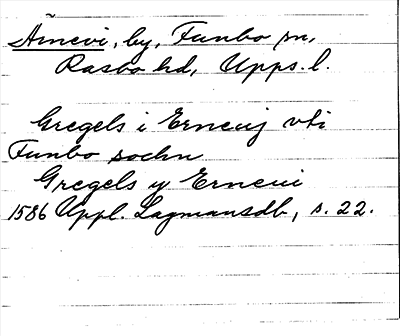 Årnevi, by, Funbo sn,
Rasbo hd, Upps. l.
Gregels i Erneuj vti
Funbo sochn
Gregels y Erneui
1586 Uppl. Lagmansdb, s. 22.